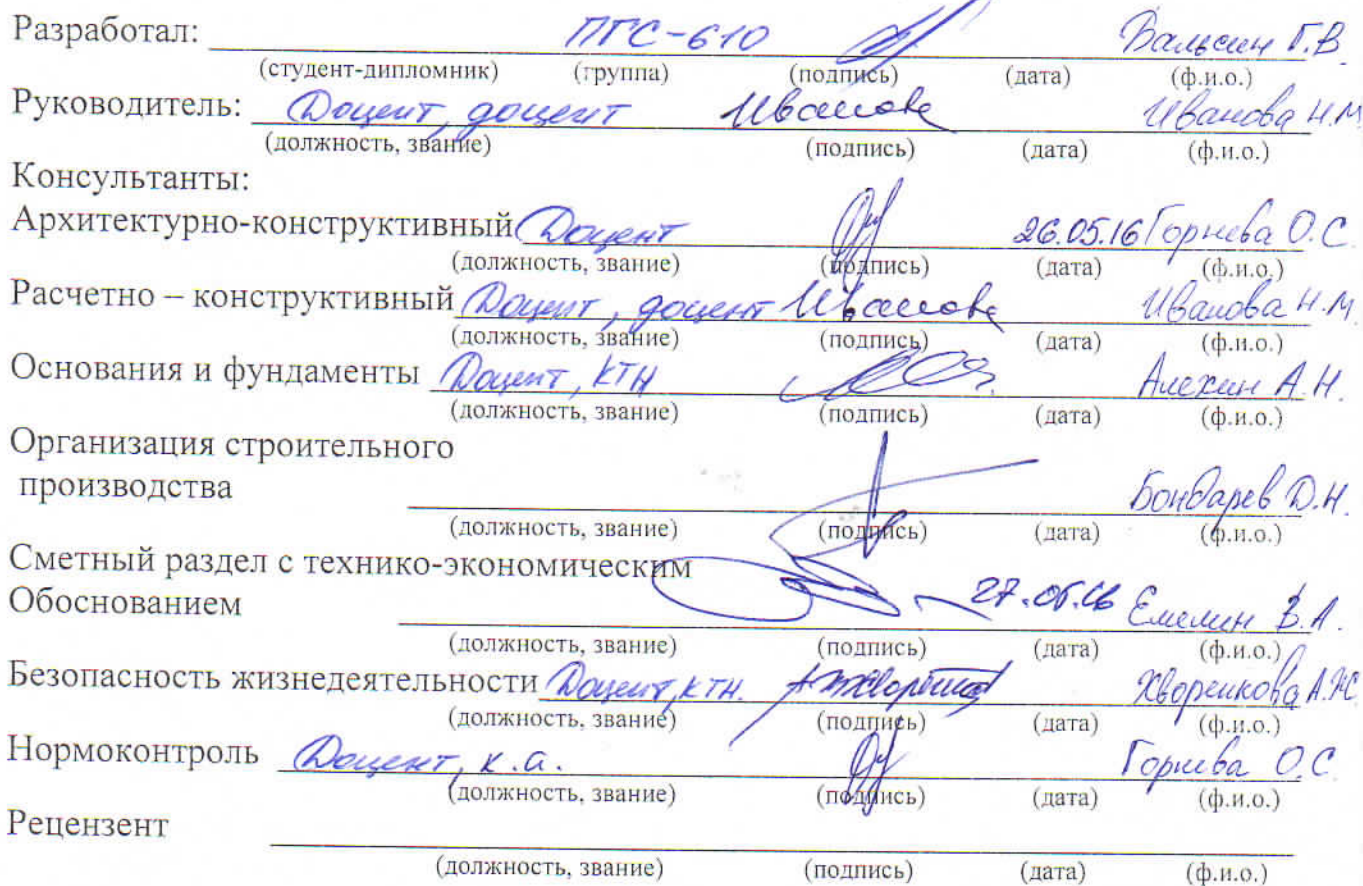 Разработал: ПГС-610 Вальсин Г.В.
(студент-дипломник) (группа) (подпись) (дата) (ф.и.о.)
Руководитель: Доцент, доцент Иванова Иванова Н.М
(должность, звание) (подпись) (дата) (ф.и.о.)
Консультанты:
Архитектурно-конструктивный Доцент 26.05.16 Горнева О.С.
(должность, звание) (подпись) (дата) (ф.и.о.)
Расчетно – конструктивный Доцент, доцент Иванова Иванова Н.М.
(должность, звание) (подпись) (дата) (ф.и.о.)
Основания и фундаменты Доцент, КТН Алехин А.Н.
(должность, звание) (подпись) (дата) (ф.и.о.)
Организация строительного
производства Бондарев Д.Н.
(должность, звание) (подпись) (дата) (ф.и.о.)
Сметный раздел с технико-экономическим
Обоснованием Емелин В.А.
(должность, звание) (подпись) (дата) (ф.и.о.)
Безопасность жизнедеятельности Доцент, КТН. Хворенкова А.Ж
(должность, звание) (подпись) (дата) (ф.и.о.)
Нормоконтроль Доцент, к.а. Горнева О.С.
(должность, звание) (подпись) (дата) (ф.и.о.)
Рецензент
(должность, звание) (подпись) (дата) (ф.и.о.)